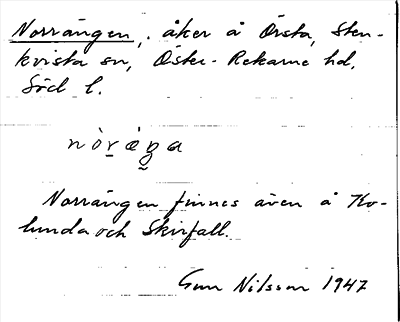 Norrängen, åker å Örsta, Sten-
kvista sn, Öster-Rekarne hd,
Söd l.
nòṟáŋa
Norrängen finnes även å Ko-
lunda och Skirfall.
Gun Nilsson 1947